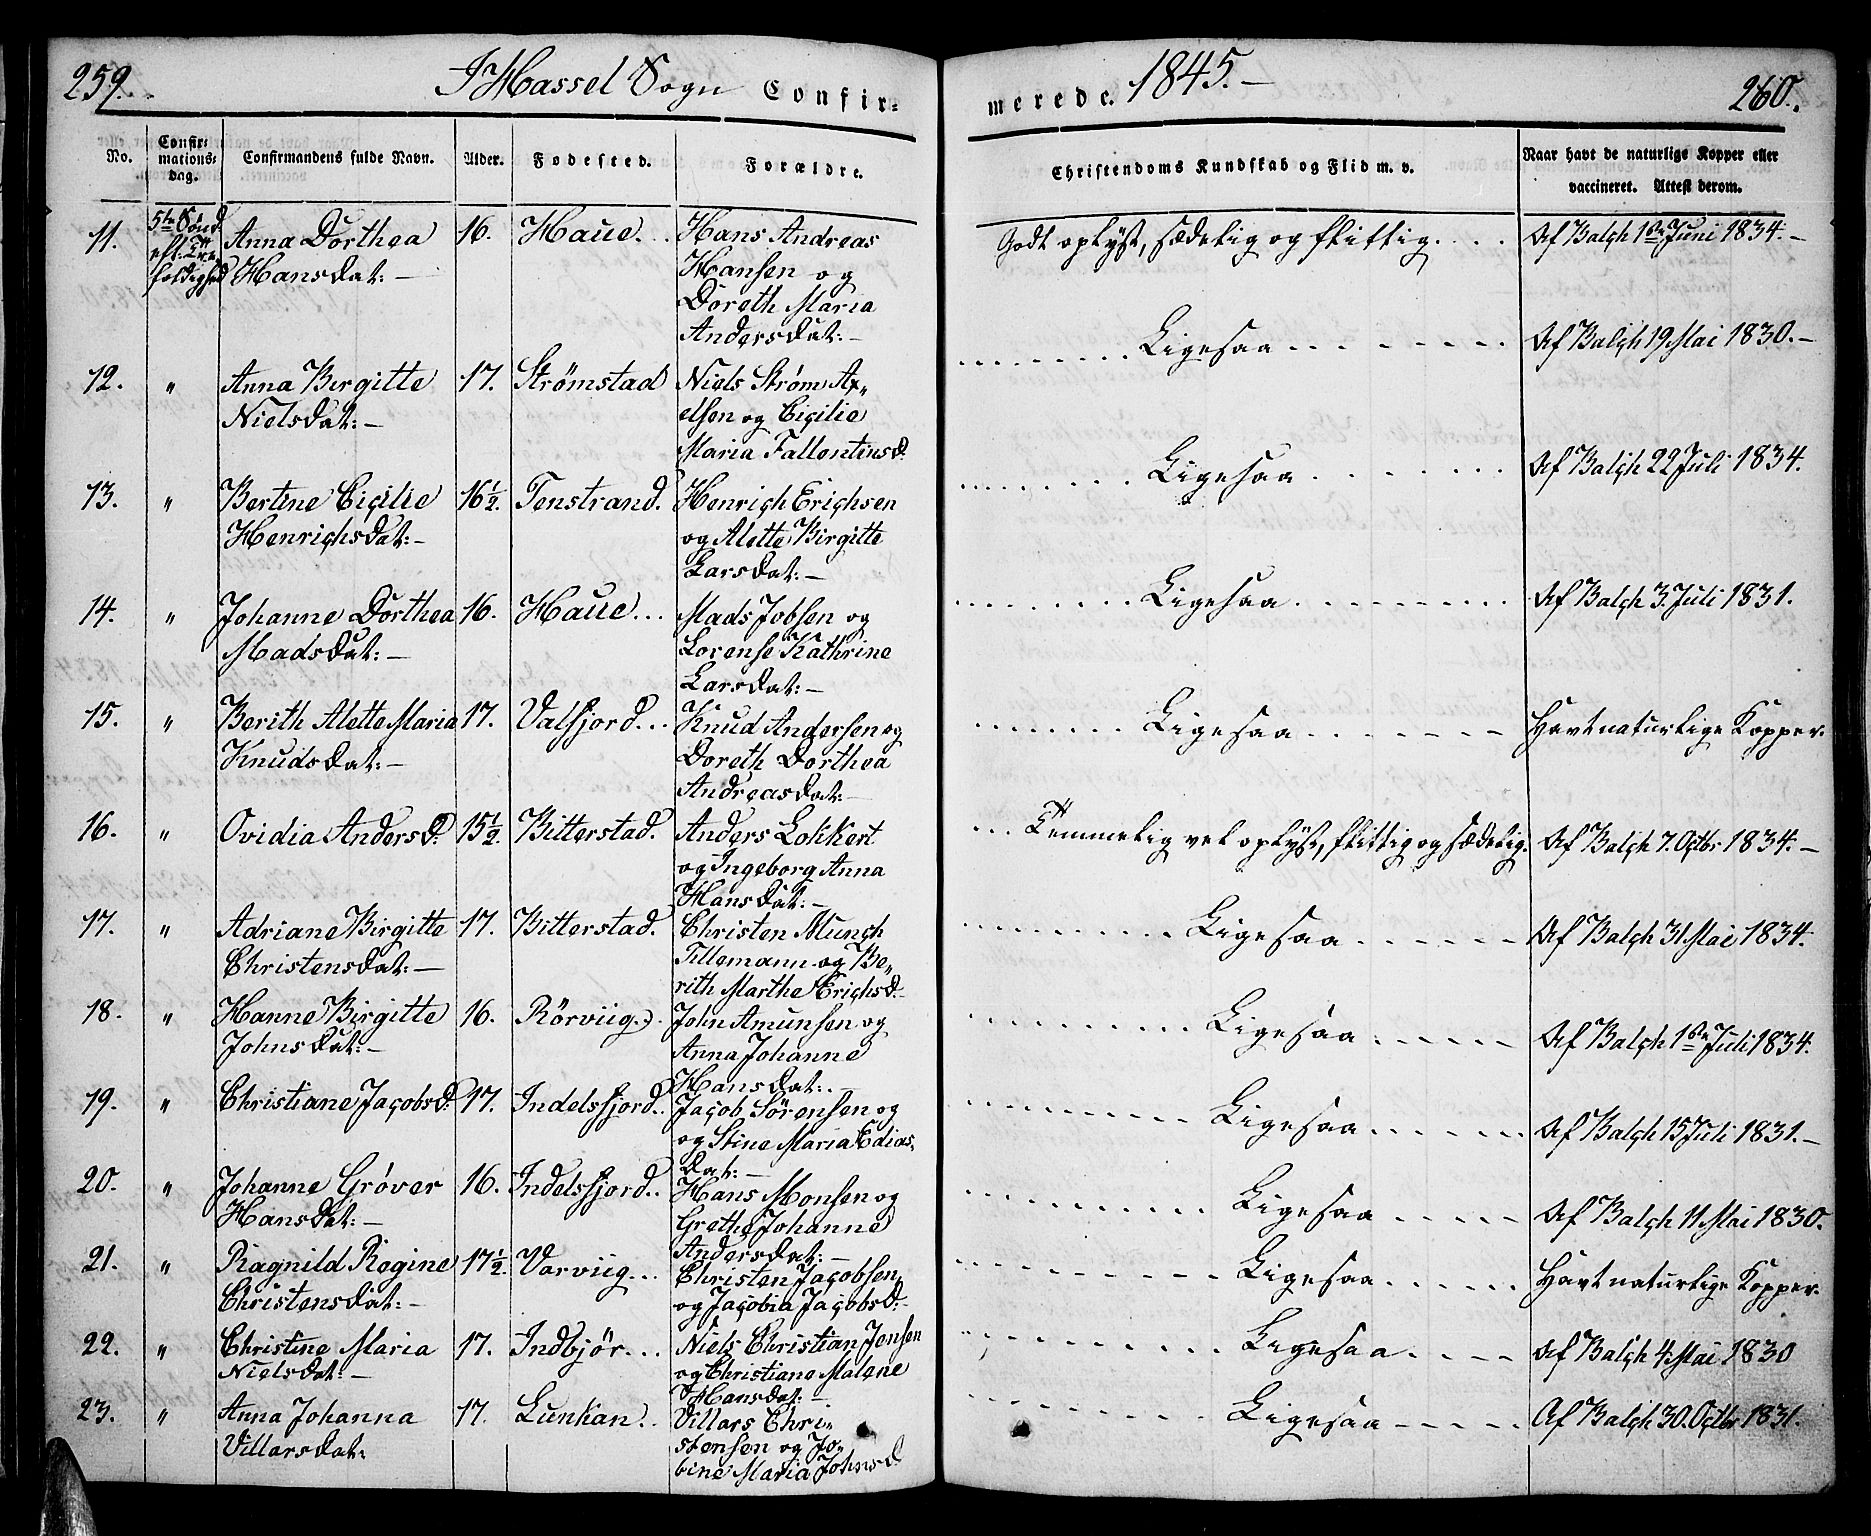 259.
I Hassel Sogn Confir-
merede. 1845.-
260.
No.
Confir-
mations-
dag.
Confirmandens fulde Navn.
Alder.
Fodested.
Forældre.
Christendoms Kundskab og Flid m. v.
Naar havt de naturlige Kopper eller
vaccineret. Attest derom.
11. 5te Sønd. Anna Dorthea 16. Haue... Hans Andreas Godt oplyst, sædelig og flittig.... Af Balch 1ste Juni 1834.-
eft: Tre-
foldighed Hansdat:- Hansen og
Doreth Maria
Andersdat:- Ligesaa Af Balch 19 Mai 1830.-
12. " Anna Birgitte 17. Strømstad Niels Strøm Ax„
Nielsdat:- elsen og Cicilie
Maria Fallentinsd: Ligesaa Af Balch 22 Juli 1834.
13. " Bertine Cicilie 16½. Tenstrand. Henrich Erichsen
Henrichsdat:- og Alette Birgitte
Larsdat:- Ligesaa Af Balch 3. Juli 1831.
14. " Johanne Dorthea 16. Haue... Mads Jobsen og
Madsdat:- Lorense Kathrine
Larsdat:-
15. " Berith Alette Maria 17. Valfjord... Knud Andersen og Ligesaa Havt naturlige Kopper.
Knudsdat:- Doreth Dorthea
Andreasdat:-
16. " Ovidia Andersd: 15½. Bitterstad. Anders Lokkert ... Temmelig vel oplyst, flittig og sædelig. Af Balch 7. Octbr 1834.-
og Ingeborg Anna
Hansdat:-
17. " Adriane Birgitte 17. Bitterstad. Christen Munch Ligesaa Af Balch 31 Mai 1834.
Christensdat:- Tillemann og Be„
rith Marthe Erichsd:-
18. " Hanne Birgitte 16. Rörviig.. John Amunsen og Ligesaa Af Balch 1ste Juli 1834.
Johnsdat:- Anna Johanne
Hansdat:-
19. " Christiane Jacobsd: 17. Indelsfjord.. Jacob Sörensen og Ligesaa Af Balch 15 Juli 1831.-
og Stine Maria Edias„
dat:-
20. " Johanne Gröver 16. Indelsfjord.. Hans Monsen og Ligesaa Af Balch 11 Mai 1830.
Hansdat:- Grethe Johanne
Andersdat:-
21. " Ragnild Regine 17½. Vorviig... Christen Jacobsen Ligesaa Havt naturlige Kopper.
Christensdat:- og Jacobia Jacobsd:-
22. " Christine Maria 17. Indbjör... Niels Christian Jensen Ligesaa Af Balch 4 Mai 1830
Nielsdat:- og Christiane Malene
Hansdat:-
23. " Anna Johanna 17. Lunkan.. Villars Chri„ Ligesaa Af Balch 30. Octbr 1831.
Villarsdat: stensen og Jo„
bine Maria Johnsd